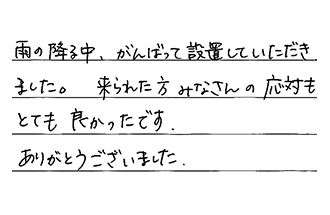 雨の降る中、がんばって設置していただき
ました。 来られた方みなさんの応対も
とても良かったです.
ありがとうございました.